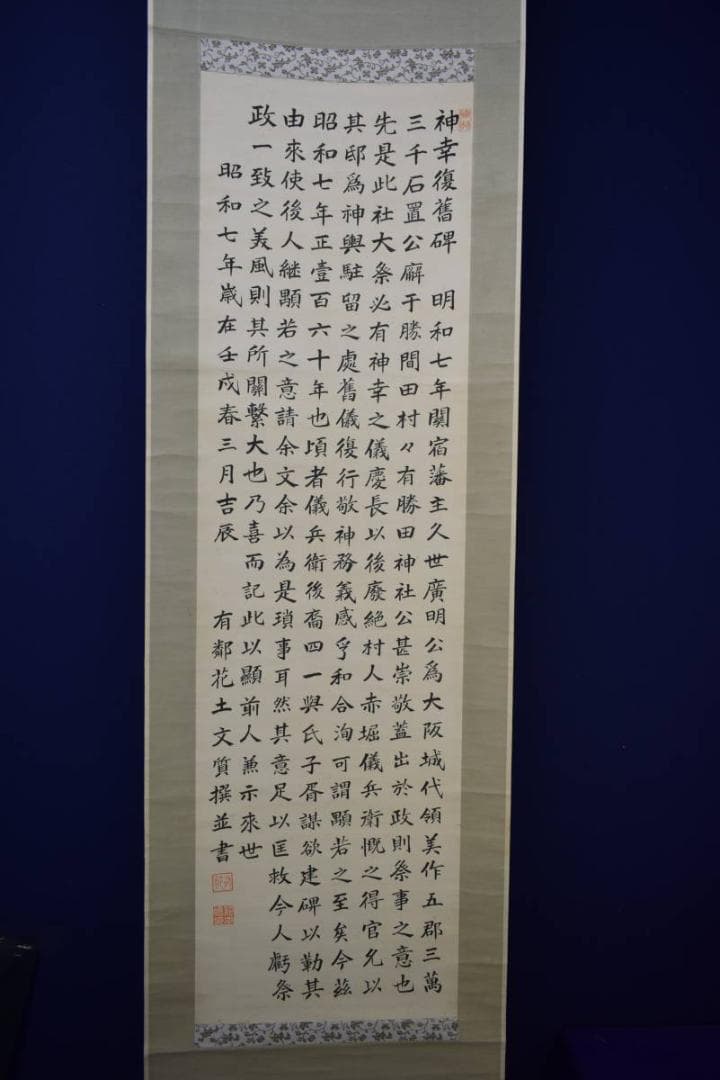 神幸復舊碑　明和七年関宿藩主久世廣明公爲大阪城代領美作五郡三萬
三千石置公廨于勝間田村々有勝田神社公甚崇敬蓋出於政則祭事之意也
先是此社大祭必有神幸之儀慶長以後廢絶村人赤堀儀兵衛慨之得官允以
其邸爲神輿駐留之處舊儀復行敬神務義感孚和合洵可謂顒若之至矣今茲
昭和七年正壹百六十年也頃者儀兵衛後裔四一與氏子胥謀欲建碑以勒其
由來使後人継顒若之意請余文余以為是瑣事耳然其意足以匡救今人虧祭
政一致之美風則其所關繋大也乃喜而記此以顯前人兼示來世
昭和七年歳在壬戌春三月吉辰　有鄰花土文質撰並書